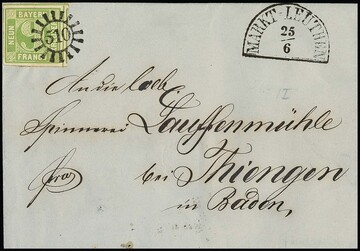 BAYERN
NEUN
FRANCO
310
MARKT-LEUTHEN
25
6
An die löbl.
Spinnerei Lauffenmühle
fro
bei Thiengen
in Baden